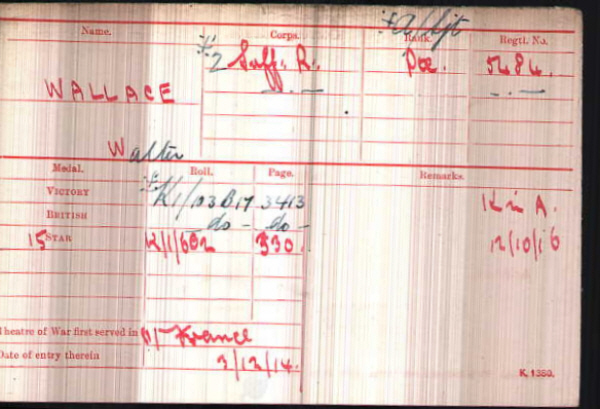 Name. Corps. Rank. Regtl. No.
A/Sjt
2 Suff. R. Pte. 5484.
WALLACE
Walter
Medal. Roll. Page. Remarks.
VICTORY K1/103B17 3413 K in A.
BRITISH do - do - 12/10/16
15 STAR K/1/602 330.
Theatre of War first served in (1) France
Date of entry therein 3/12/14.
K. 1380.